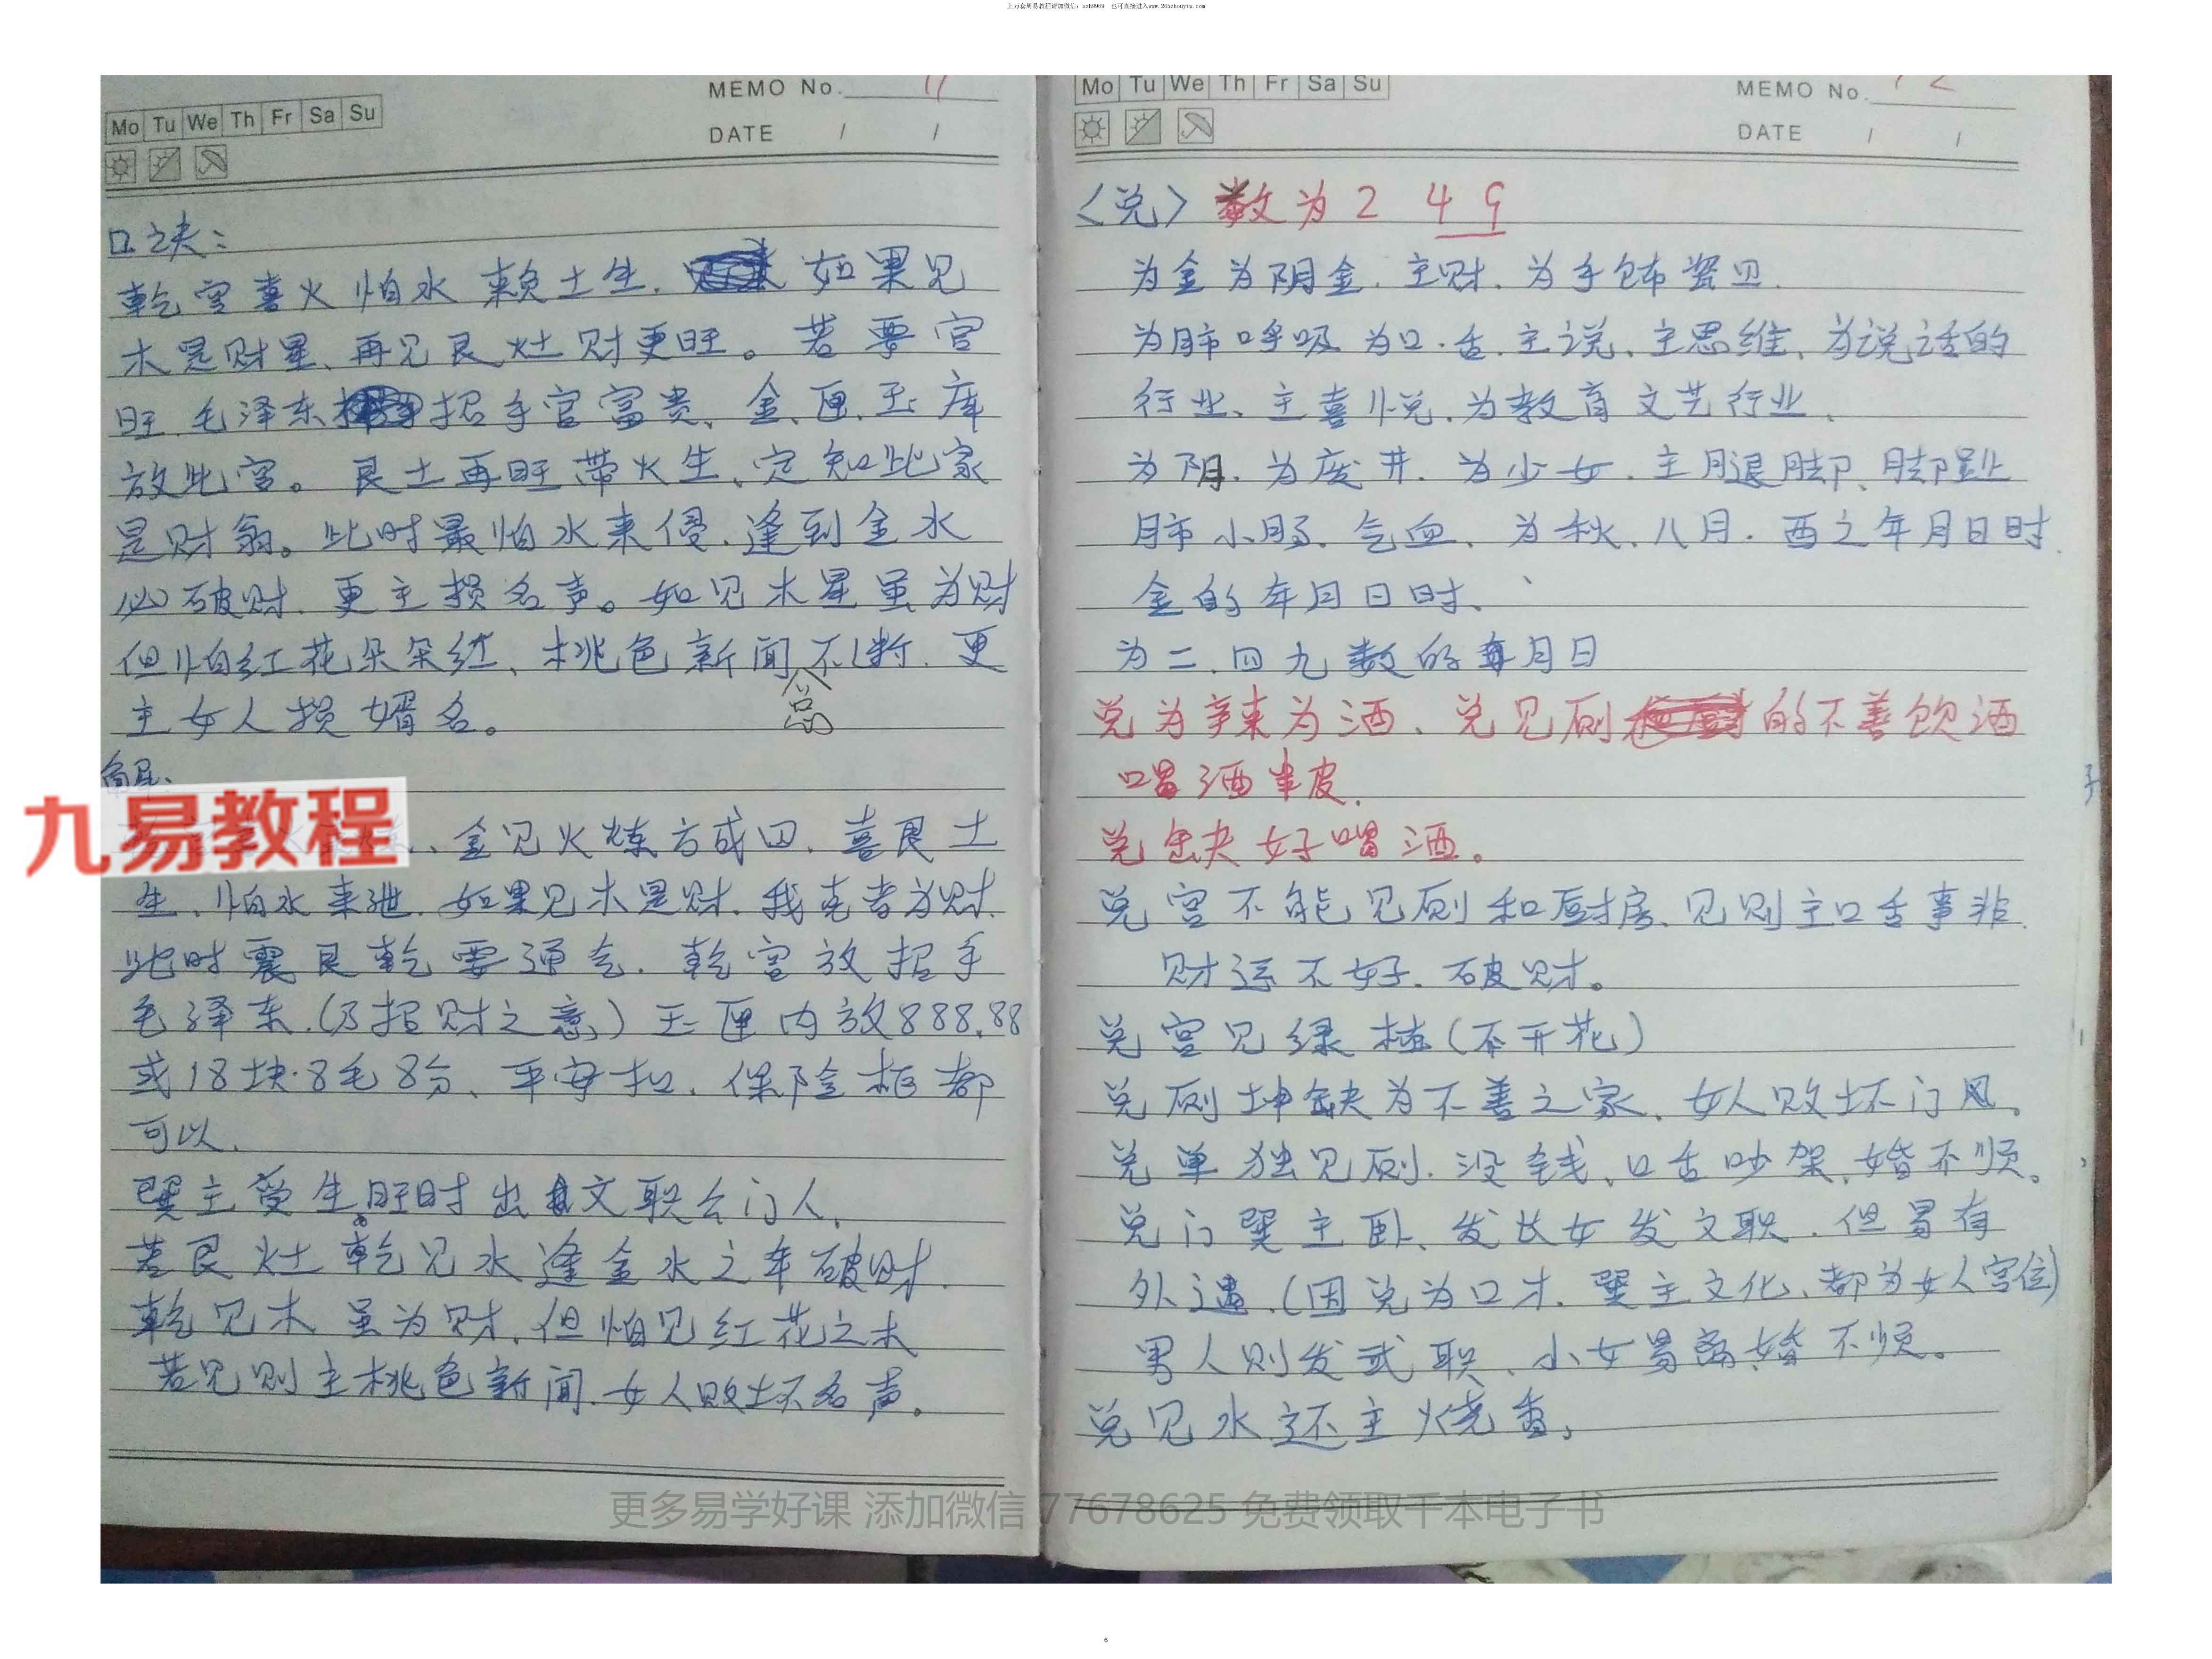 上万套周易教程请加微信：axh9969 也可直接进入www.265zhouyiw.com
Mo Tu We Th Fr Sa Su
MEMO No. 11
DATE / /
口诀：
乾宫喜火怕水赖土生. 如果见
木是财星、再见艮灶财更旺。若要官
旺.毛泽东招手官富贵、金、匣、玉库
放此宫。艮土再旺带火生、定知此家
是财翁。此时最怕水来侵.逢到金水
必破财.更主损名声。如见木星虽为财
但怕红花朵朵红、桃色新闻不断.更
主女人损婿名。
翁
解、
金见火炼方成囚.喜艮土
生、怕水来泄.如果见木是财.我克者为财.
此时震艮乾要通气.乾宫放招手
毛泽东.(乃招财之意)玉匣内放888.88
或18块8毛8分、平安扣、保险柜都
可以.
巽主受生旺时出文职公门人.
若艮灶乾见水逢金水之年破财.
乾见木虽为财.但怕见红花之木
若见则主桃色新闻.女人败坏名声。
Mo Tu We Th Fr Sa Su
MEMO No. 12
DATE / /
〈兑〉数为2 4 9
为金为阴金.主财.为手饰
为肺呼吸为口.舌.主说、主思维、为说话的
行业、主喜悦.为教育文艺行业.
为阴.为废井.为少女.主腿脚、脚趾
肺小肠.气血、为秋、八月.酉之年月日时.
金的年月日时、
为二.四九数的年月日
兑为辛辣为酒、兑见厕的不善饮酒
喝酒
兑缺好喝酒。
兑宫不能见厕和厨房、见则主口舌事非.
财运不好.破财。
兑宫见绿植(不开花)
兑厕坤缺为不善之家、女人败坏门风。
兑单独见厕.没钱、口舌吵架、婚不顺。
兑门巽主卧、发长女发文职.但易有
外遇.(因兑为口才.巽主文化、都为女人宫位)
男人则发武职、小女易离婚不顺。
兑见水还主烧香、
九易教程
更多易学好课 添加微信 77678625 免费领取千本电子书
6